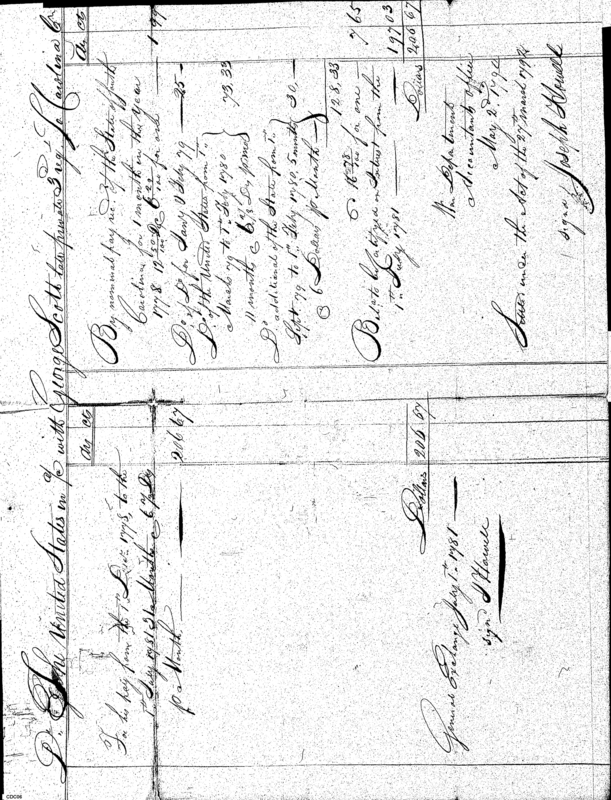 Dr. The United States in a/c with George Scott late private 3 regt So Carolina Cr
Ds Cts
For his pay from the 1st Decr. 1778, to the
1st July 1781 31 Months @ 6 2/3 Drs
p a Month
206 67
Dollars 206 67
General Exchange July 1st 1781
signd J Howell
Ds Cts
By nominal pay rec. of the State of South
Carolina for 1 month in the Year
1778
1 97
Do of Do for Jany & July 79
25
Do of the United States from 1st
March 79 to 1st Feby 1780
11 months @ 6 2/3 Drs p month
73.33
Do additional of the State from 1st
Sept 79 to 1st Feby 1780, 5 months
@ 6 Dollars p Month
30.
128.33
7 65
Balate be Certifyd on Interest from the
1st July 1781
197 03
Dollars
206 67
War Department
Accountants office
May 2nd 1794
Settled under the Act of the 27 march 1792
signd Joseph Howell
CDC56